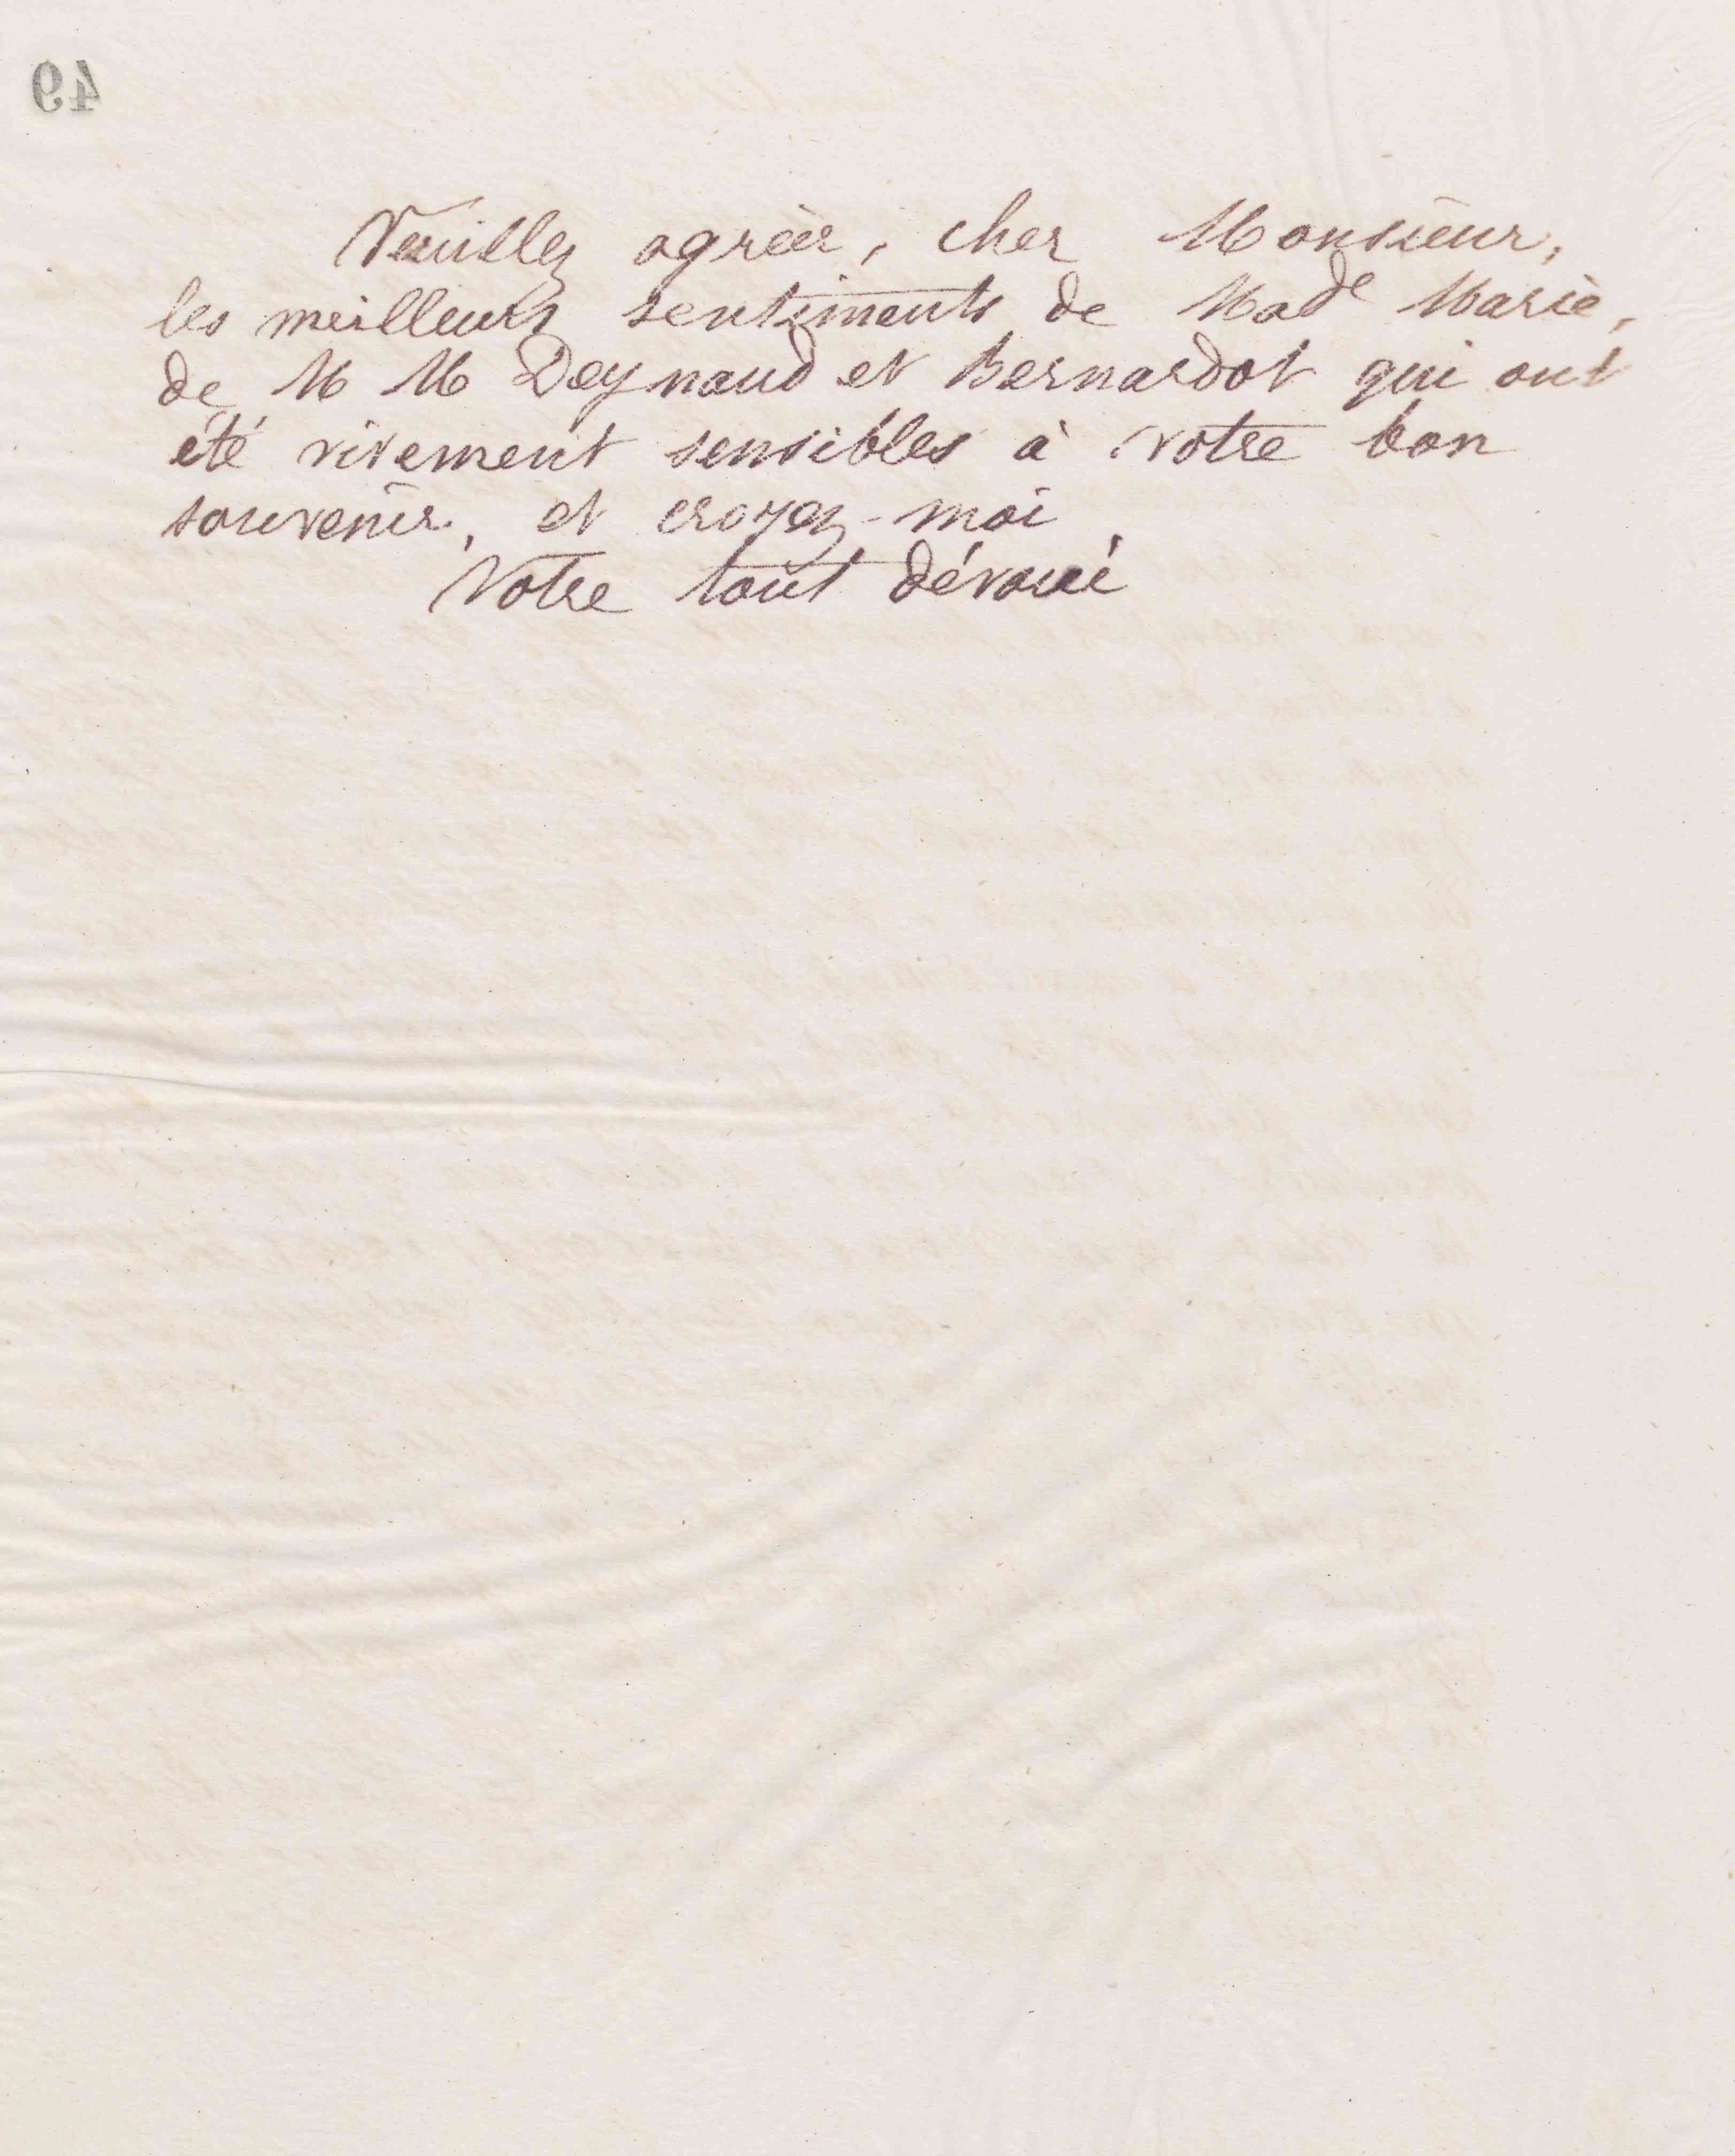 49
Veuillez agréer, cher Monsieur,
les meilleurs sentiments de Made Marie,
de M M Deynaud et Bernardot qui ont
été vivement sensibles à votre bon
souvenir, et croyez-moi,
Votre tout dévoué